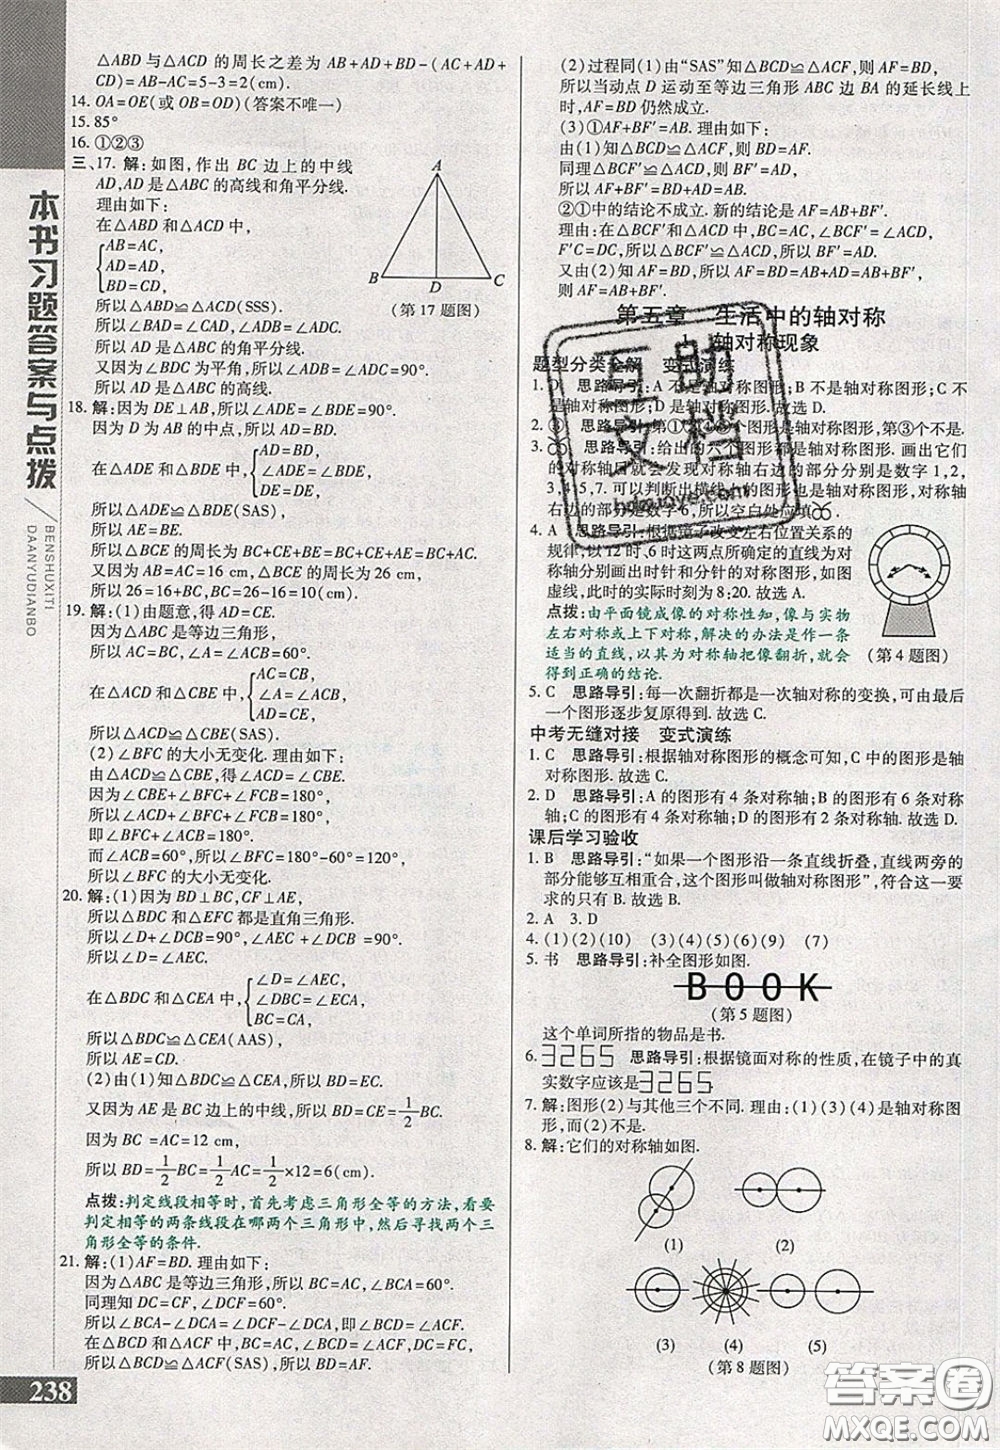 本书习题答案与点拨
BENSHUXITI
DAANYUDIANBO
△ABD 与△ACD 的周长之差为 AB+AD+BD-(AC+AD+
CD)=AB-AC=5-3=2(cm).
14. OA=OE(或 OB=OD)(答案不唯一)
15. 85°
16. ①②③
三、17. 解:如图,作出 BC 边上的中线
AD,AD 是△ABC 的高线和角平分线.
理由如下:
在△ABD 和△ACD 中,
AB=AC,
AD=AD,
BD=CD,
所以△ABD≌△ACD(SSS).
所以∠BAD=∠CAD,∠ADB=∠ADC.
所以 AD 是△ABC 的角平分线.
又因为∠BDC 为平角,所以∠ADB=∠ADC=90°.
所以 AD 是△ABC 的高线.
A
B
D
C
(第 17 题图)
18. 解:因为 DE⊥AB,所以∠ADE=∠BDE=90°.
因为 D 为 AB 的中点,所以 AD=BD.
在△ADE 和△BDE 中,
AD=BD,
∠ADE=∠BDE,
DE=DE,
所以△ADE≌△BDE(SAS).
所以 AE=BE.
所以△BCE 的周长为 BC+CE+BE=BC+CE+AE=BC+AC.
又因为 AC=16 cm,△BCE 的周长为 26 cm,
所以 26=16+BC,BC=26-16=10(cm).
19. 解:(1)由题意,得 AD=CE.
因为△ABC 是等边三角形,
所以 AC=BC,∠A=∠ACB=60°.
在△ACD 和△CBE 中,
AC=CB,
∠A=∠ACB,
AD=CE,
所以△ACD≌△CBE(SAS).
(2)∠BFC 的大小无变化. 理由如下:
由△ACD≌△CBE,得∠ACD=∠CBE.
因为∠CBE+∠BFC+∠FCB=180°,
所以∠ACD+∠BFC+∠FCB=180°,
即∠BFC+∠ACB=180°.
而∠ACB=60°,所以∠BFC=120°.
所以∠BFC 的大小无变化.
20. 解:(1)因为 BD⊥BC,CF⊥AE,
所以△BDC 和△EFC 都是直角三角形.
所以∠D+∠DCB=90°,∠AEC +∠DCB=90°.
所以∠D=∠AEC.
在△BDC 和△CEA 中,
∠D=∠AEC,
∠DBC=∠ECA,
BC=CA,
所以△BDC≌△CEA(AAS).
所以 AE=CD.
(2)由(1)知△BDC≌△CEA,所以 BD=EC.
又因为 AE 是 BC 边上的中线,所以 BD=CE=1/2 BC.
因为 BC =AC=12 cm,
所以 BD=1/2 BC=1/2 AC=1/2×12=6(cm).
点拨:判定线段相等时,首先考虑三角形全等的方法,看要
判定相等的两条线段在哪两个三角形中,然后寻找两个三
角形全等的条件.
21. 解:(1)AF=BD. 理由如下:
因为△ABC 是等边三角形,所以 BC=AC,∠BCA=60°.
同理知 DC=CF,∠DCF=60°.
所以∠BCA-∠DCA=∠DCF-∠DCA,即∠BCD=∠ACF.
在△BCD 和△ACF 中,BC=AC,∠BCD=∠ACF,DC=FC,
所以△BCD≌△ACF(SAS),所以 BD=AF.
238
(2)过程同(1)由“SAS”知△BCD≌△ACF,则 AF=BD,
所以当动点 D 运动至等边三角形 ABC 边 BA 的延长线上
时,AF=BD 仍然成立.
(3)①AF+BF′=AB. 理由如下:
由(1)知△BCD≌△ACF,则 BD=AF.
同理△BCF′≌△ACD,则 BF′=AD.
所以 AF+BF′=BD+AD=AB.
②①中的结论不成立. 新的结论是 AF=AB+BF′.
理由如下:在△BCF′和△ACD 中,BC=AC,∠BCF′=∠ACD,
F′C=DC,所以△BCF′≌△ACD(SAS),所以 BF′=AD.
又由(2)知 AF=BD,所以 AF=BD=AB+AD=AB+BF′,
所以 AF=AB+BF′.
第五章 生活中的轴对称
1 轴对称现象
题型分类全解 变式演练
1. D 思路导引:A 不是轴对称图形;B 不是轴对称图形;C 不是
轴对称图形;D 是轴对称图形. 故选 D.
2. ③ 思路导引:第①②④个是轴对称图形,第③个不是.
3. 思路导引:给出的六个图形都是轴对称图形. 画出它
们的对称轴后就会发现对称轴右边的部分分别是数字 1,2,
3,4,5,7. 可以判断出横线上的图形也是轴对称图形,对称轴
右边的部分是数字 6,所以空白处应填
4. A 思路导引:根据镜子改变左右位置关系的
规律,以 12 时、6 时这两点所确定的直线为对
称轴分别画出时针和分针的对称图形,如图
虚线,此时的实际时刻为 8:20. 故选 A.
点拨:由平面镜成像的对称性知,像与实物
左右对称或上下对称,解决的办法是作一条
适当的直线,以其为对称轴把像翻折,就会
得到正确的结论.
(第 4 题图)
5. C 思路导引:每一次翻折都是一次轴对称的变换,可由最后
一个图形逐步复原得到. 故选 C.
中考无缝对接 变式演练
1. C 思路导引:根据轴对称图形的概念可知,C 中的图形是轴
对称图形. 故选 C.
2. D 思路导引:A 的图形有 4 条对称轴;B 的图形有 6 条对称
轴;C 的图形有 4 条对称轴;D 的图形有 2 条对称轴. 故选 D.
课后学习验收
1. B 思路导引:“如果一个图形沿一条直线折叠,直线两旁的
部分能够互相重合,这个图形叫做轴对称图形”,符合这一要
求的只有 B. 故选 B.
2. A 3. D
4. (1)(2)(10) (3)(4)(5)(6)(9) (7)
5. 书 思路导引:补全图形如图.
BOOK
(第 5 题图)
这个单词所指的物品是书.
6. 3265 思路导引:根据镜面对称的性质,在镜子中的真
实数字应该是 3265.
7. 解:图形(2)与其他三个不同. 理由:(1)(3)(4)是轴对称图
形,而(2)不是.
8. 解:它们的对称轴如图.
(1)
(2)
(3)
(4)
(5)
(第 8 题图)
互助
文档
答案圈
MXQE.COM